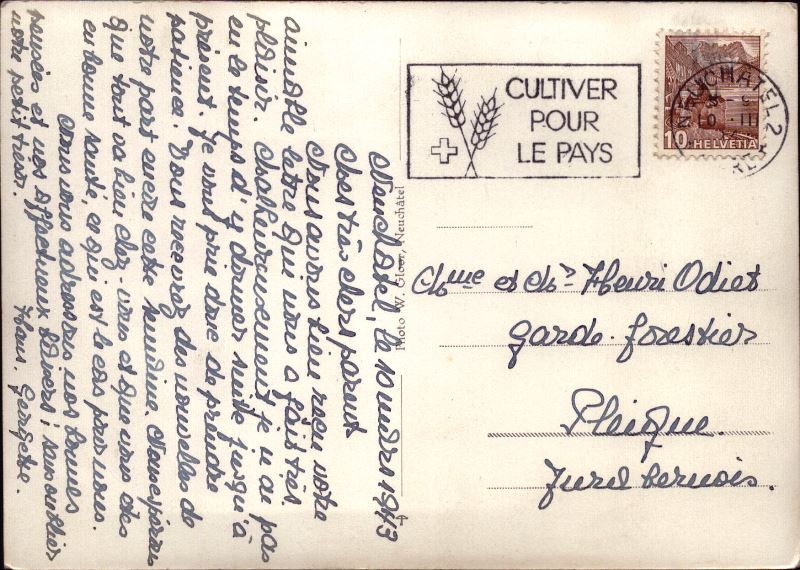 Neuchâtel, le 10 mars 1943
Mes très chers parents
Nous avons bien reçu votre
aimable lettre qui nous a fait très
plaisir. Malheureusement je n'ai pas
eu le temps d'y donner suite jusqu'à
présent. Je vous prie donc de prendre
patience. Vous recevrez des nouvelles de
notre part encore cette semaine. Nous espérons
que tout va bien chez-vous et que vous êtes
en bonne santé, ce qui est le cas pour nous.
Nous vous adressons nos bonnes
pensées et nos affectueux baisers, sans oublier
notre petit trésor. Hans. Georgette.
Photo W. Gloor, Neuchâtel
CULTIVER
POUR
LE PAYS
NEUCHÂTEL 2
10
HELVETIA
Mme et Mr Henri Odiet
Garde-forestier
Pleigne
Jura bernois.